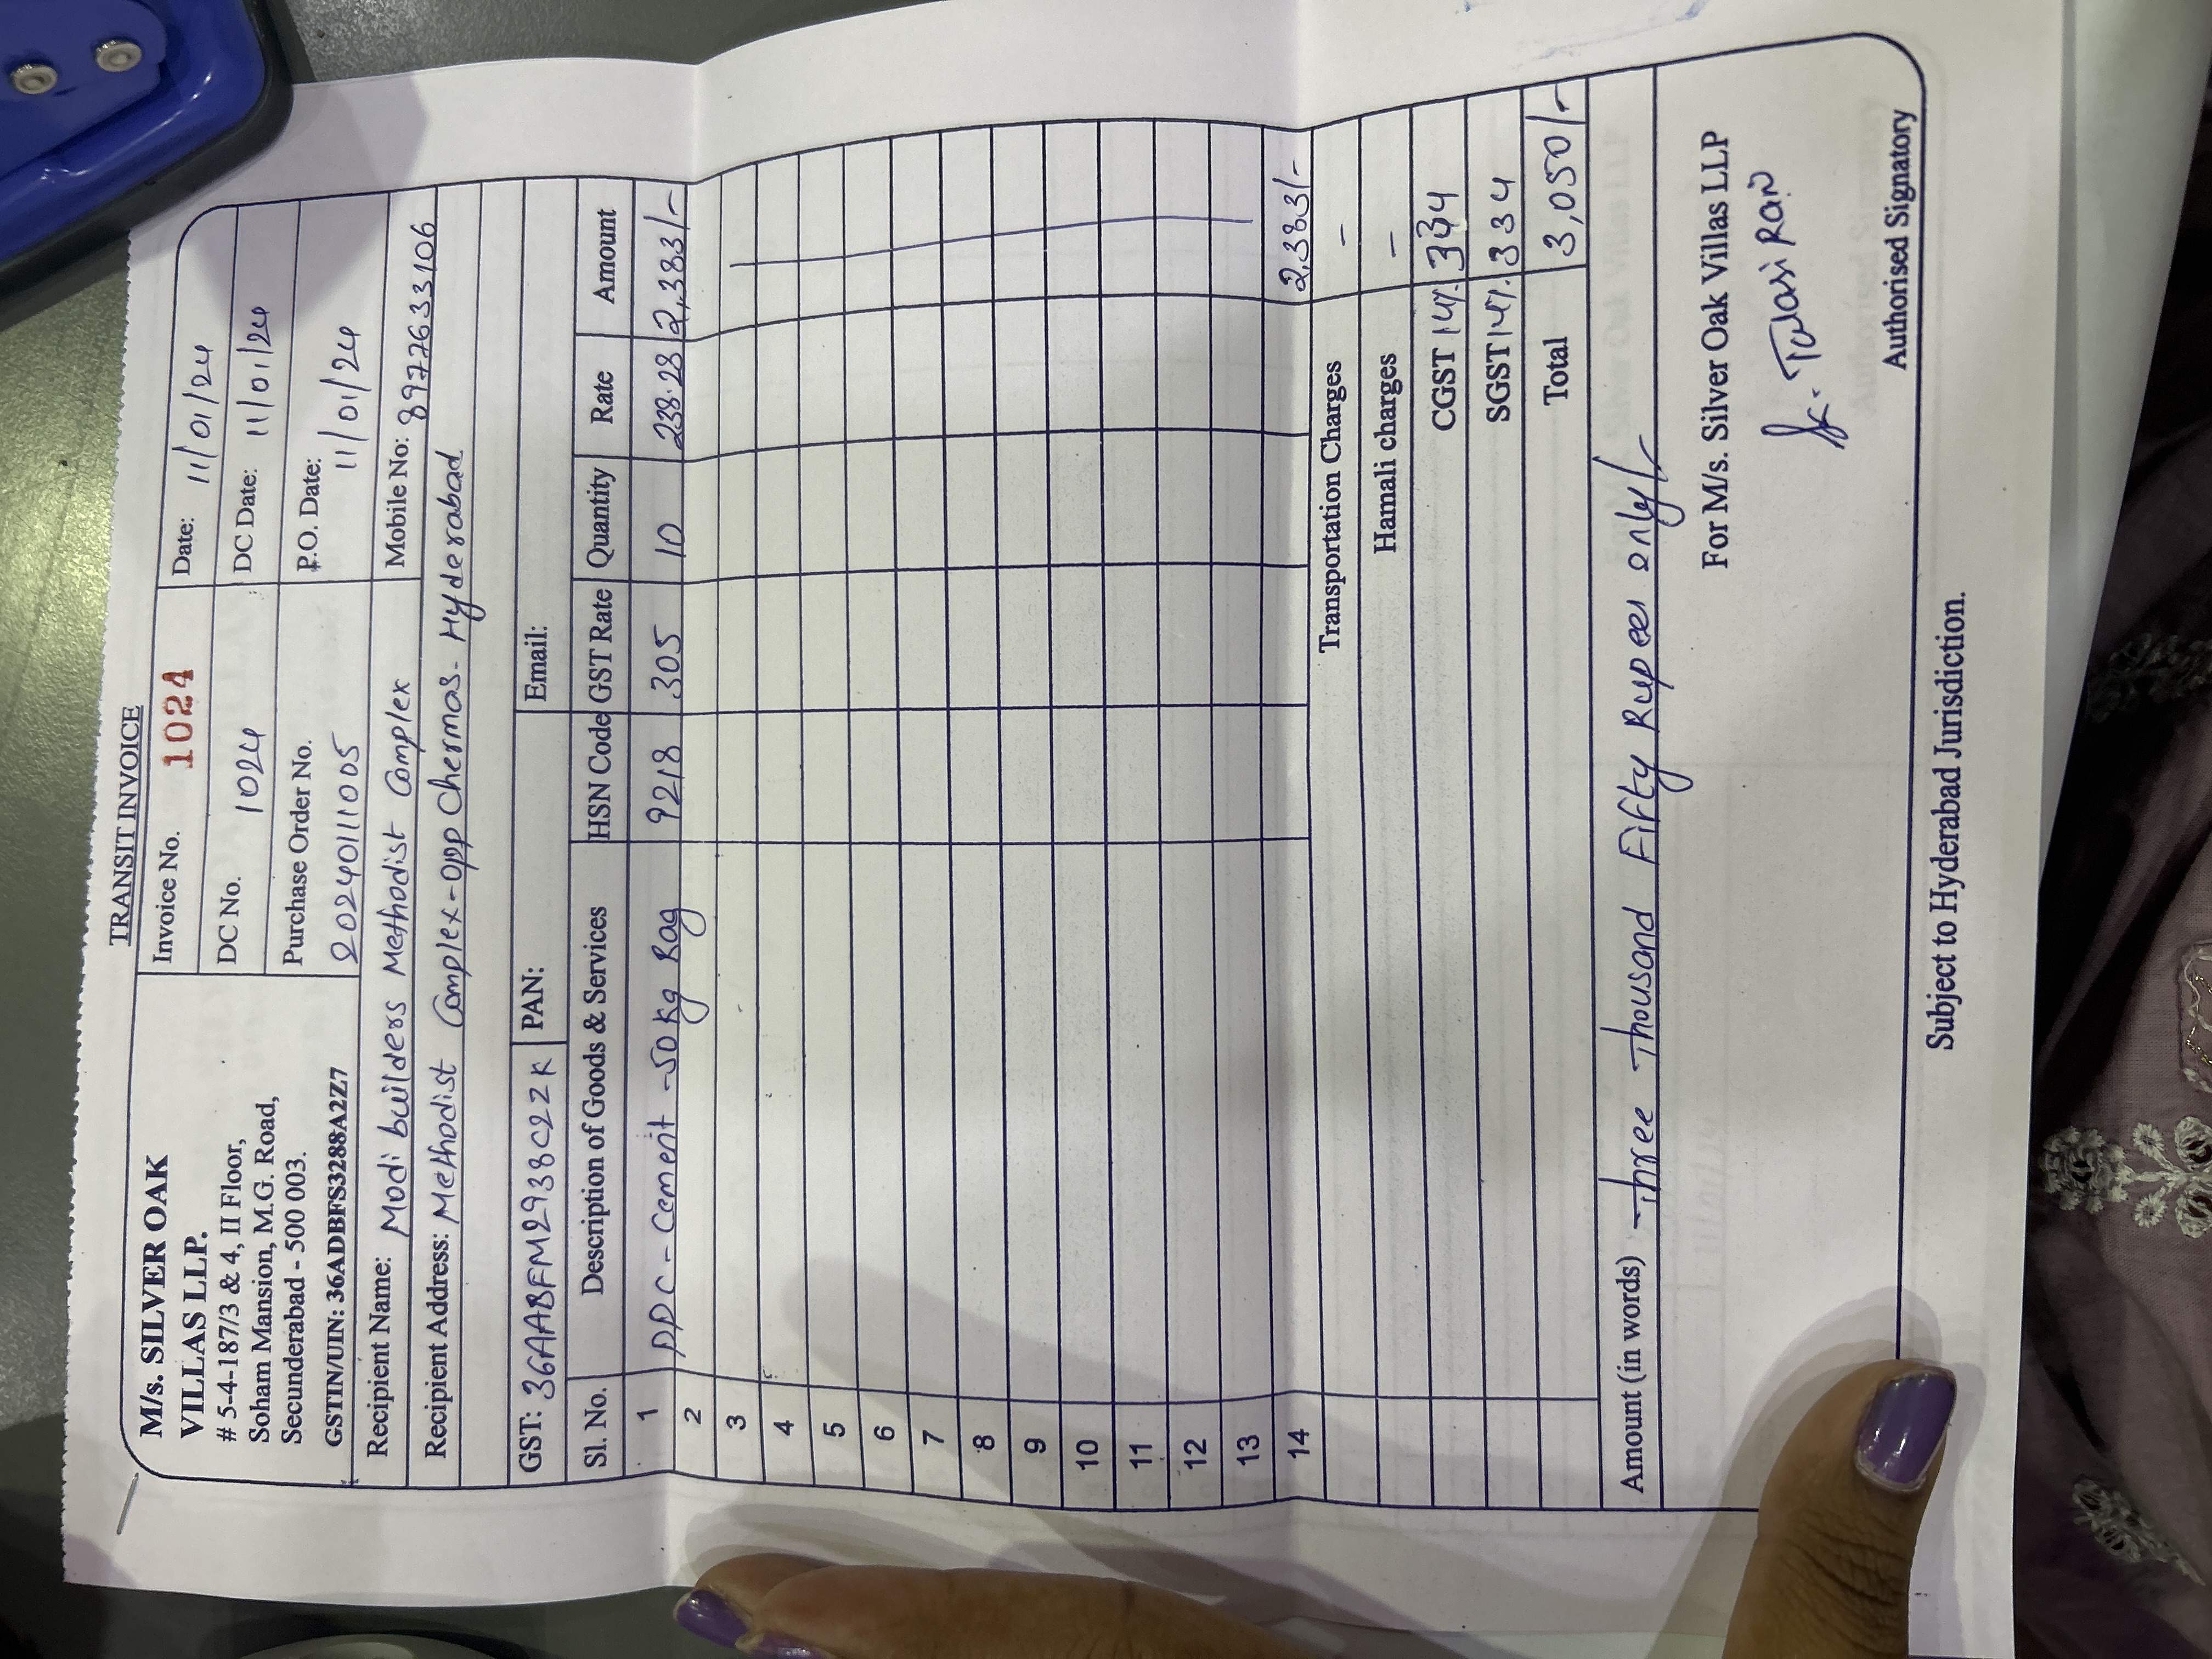 TRANSIT INVOICE
M/s. SILVER OAK
VILLAS LLP.
# 5-4-187/3 & 4, II Floor,
Soham Mansion, M.G. Road,
Secunderabad - 500 003.
GSTIN/UIN: 36ADBFS3288A2Z7
Invoice No. 1024
Date: 11/01/24
DC No. 1024
DC Date: 11/01/24
Purchase Order No.
20240111005
P.O. Date:
11/01/24
Recipient Name: Modi builders Methodist Complex
Mobile No: 8977633106
Recipient Address: Methodist Complex-opp Chermas-Hyderabad
GST: 36AABFM2938C2ZK PAN: Email:
Sl. No. Description of Goods & Services HSN Code GST Rate Quantity Rate Amount
1 PPC-Cement-50Kg Bag 9218 305 10 238.28 2,383/-
2
3
4
5
6
7
8
9
10
11
12
13
14 2,383/-
Transportation Charges -
Hamali charges -
CGST 14%. 334
SGST 14%. 334
Total 3,050/-
Amount (in words) Three Thousand Fifty Rupees only/-
For M/s. Silver Oak Villas LLP
Authorised Signatory
Subject to Hyderabad Jurisdiction.